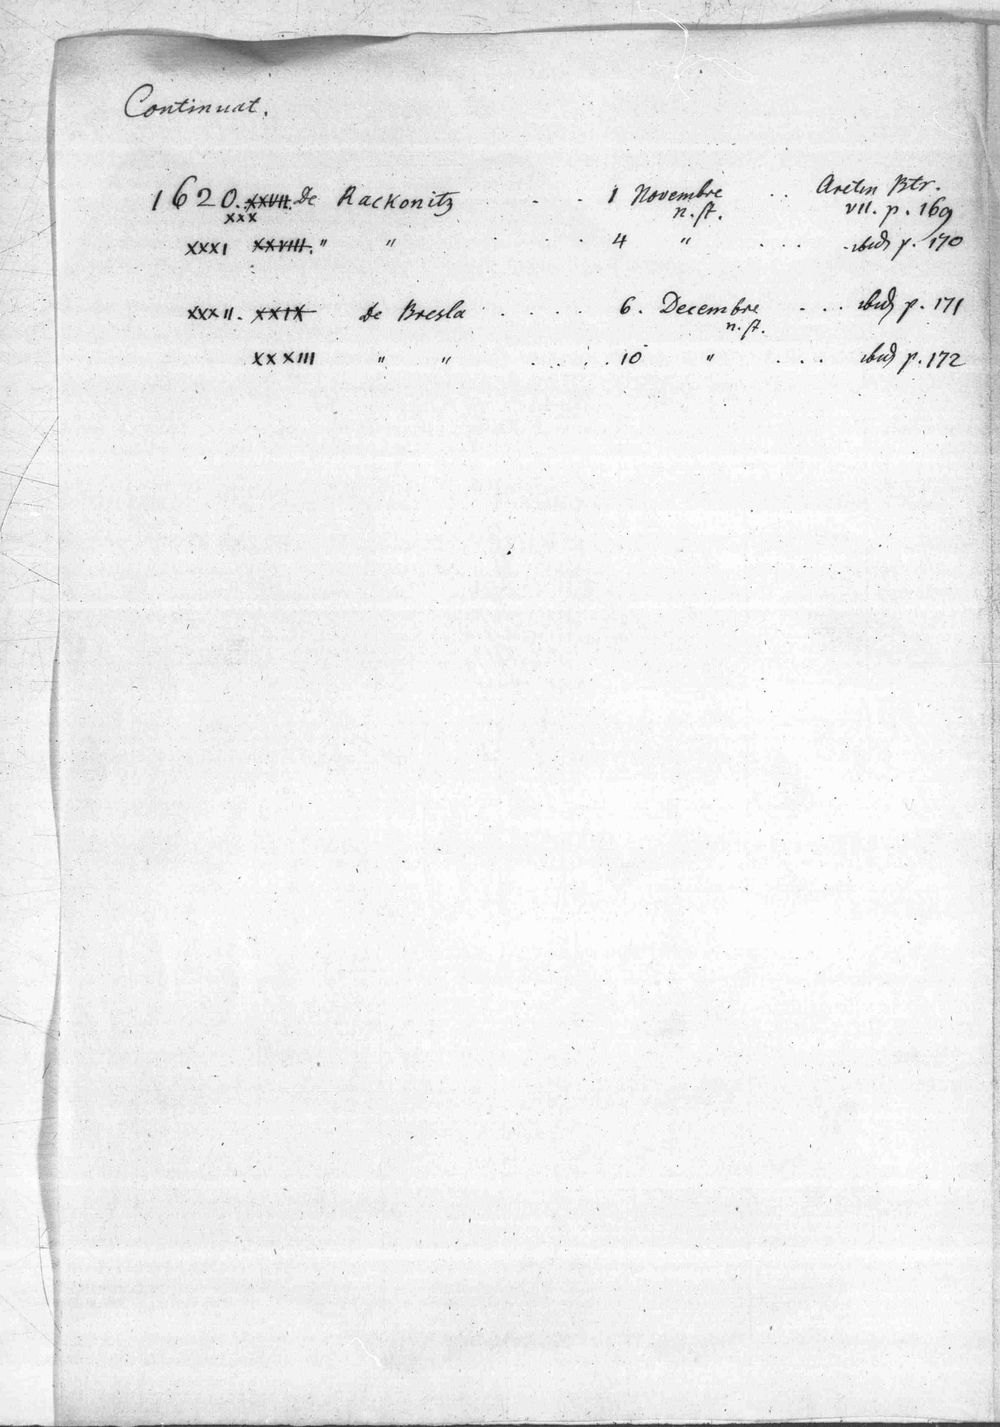 Continuat.
1620. XXVII. De Rackonitz . . . 1 Novembre . . Aretin Btr.
XXX n. st. VII. p. 169
XXXI XXVIII. " " . . . . 4 " . . . ibid p. 170
XXXII. XXIX de Bresla . . . . . 6. Decembre . . . ibid p. 171
n. st.
XXXIII " " . . . . . 10 " . . . ibid p. 172